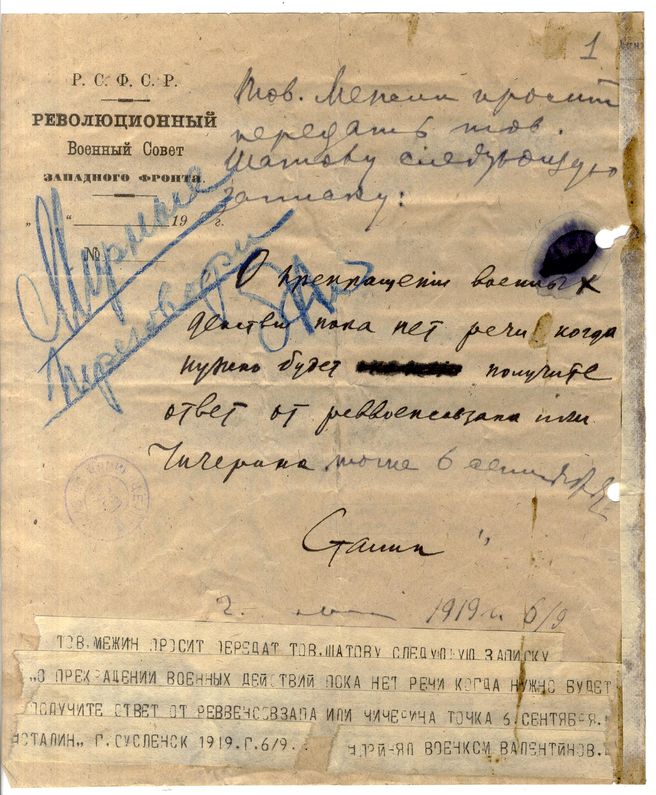 1
Р. С. Ф. С. Р.
РЕВОЛЮЦИОННЫЙ
Военный Совет
ЗАПАДНОГО ФРОНТА.
„ “ 19 г.
№
Мирные
переговоры
Тов. Межин просит
передать тов.
Шатову следующую
записку:
О прекращении военных
действий пока нет речи когда
нужно будет получите
ответ от реввоенсовзапа или
Чичерина точка 6 сентября
Сталин "
г. 1919 г. 6/9
ТОВ.МЕЖИН ПРОСИТ ПЕРЕДАТ ТОВ.ШАТОВУ СЛЕДУЮЩУЮ ЗАПИСКУ
„О ПРЕКРАЩЕНИИ ВОЕННЫХ ДЕЙСТВИЙ ПОКА НЕТ РЕЧИ КОГДА НУЖНО БУДЕТ
ПОЛУЧИТЕ ОТВЕТ ОТ РЕВВЕНСОВЗАПА ИЛИ ЧИЧЕРИНА ТОЧКА 6 СЕНТЯБРЯ.
СТАЛИН„ Г.СМОЛЕНСК 1919.Г.6/9.. ПРИНЯЛ ВОЕНКОМ ВАЛЕНТИНОВ.